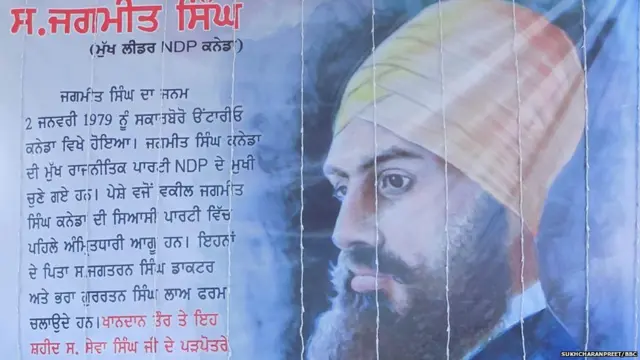 ਸ.ਜਗਮੀਤ ਸਿੰਘ
(ਮੁੱਖ ਲੀਡਰ NDP ਕਨੇਡਾ)
ਜਗਮੀਤ ਸਿੰਘ ਦਾ ਜਨਮ
2 ਜਨਵਰੀ 1979 ਨੂੰ ਸਕਾਬੋਰੋ ਉਂਟਾਰੀਓ
ਕਨੇਡਾ ਵਿਖੇ ਹੋਇਆ। ਜਗਮੀਤ ਸਿੰਘ ਕਨੇਡਾ
ਦੀ ਮੁੱਖ ਰਾਜਨੀਤਿਕ ਪਾਰਟੀ NDP ਦੇ ਮੁਖੀ
ਚੁਣੇ ਗਏ ਹਨ। ਪੇਸ਼ੇ ਵਜੋਂ ਵਕੀਲ ਜਗਮੀਤ
ਸਿੰਘ ਕਨੇਡਾ ਦੀ ਸਿਆਸੀ ਪਾਰਟੀ ਵਿੱਚ
ਪਹਿਲੇ ਅੰਮ੍ਰਿਤਧਾਰੀ ਆਗੂ ਹਨ। ਇਹਨਾਂ
ਦੇ ਪਿਤਾ ਸ.ਜਗਤਰਨ ਸਿੰਘ ਡਾਕਟਰ
ਅਤੇ ਭਰਾ ਗੁਰਰਤਨ ਸਿੰਘ ਲਾਅ ਫਰਮ
ਚਲਾਉਂਦੇ ਹਨ। ਖਾਨਦਾਨ ਤੌਰ ਤੇ ਇਹ
ਸ਼ਹੀਦ ਸ. ਸੇਵਾ ਸਿੰਘ ਜੀ ਦੇ ਪੜਪੋਤਰੇ
SUKHCHARANPREET/BBC